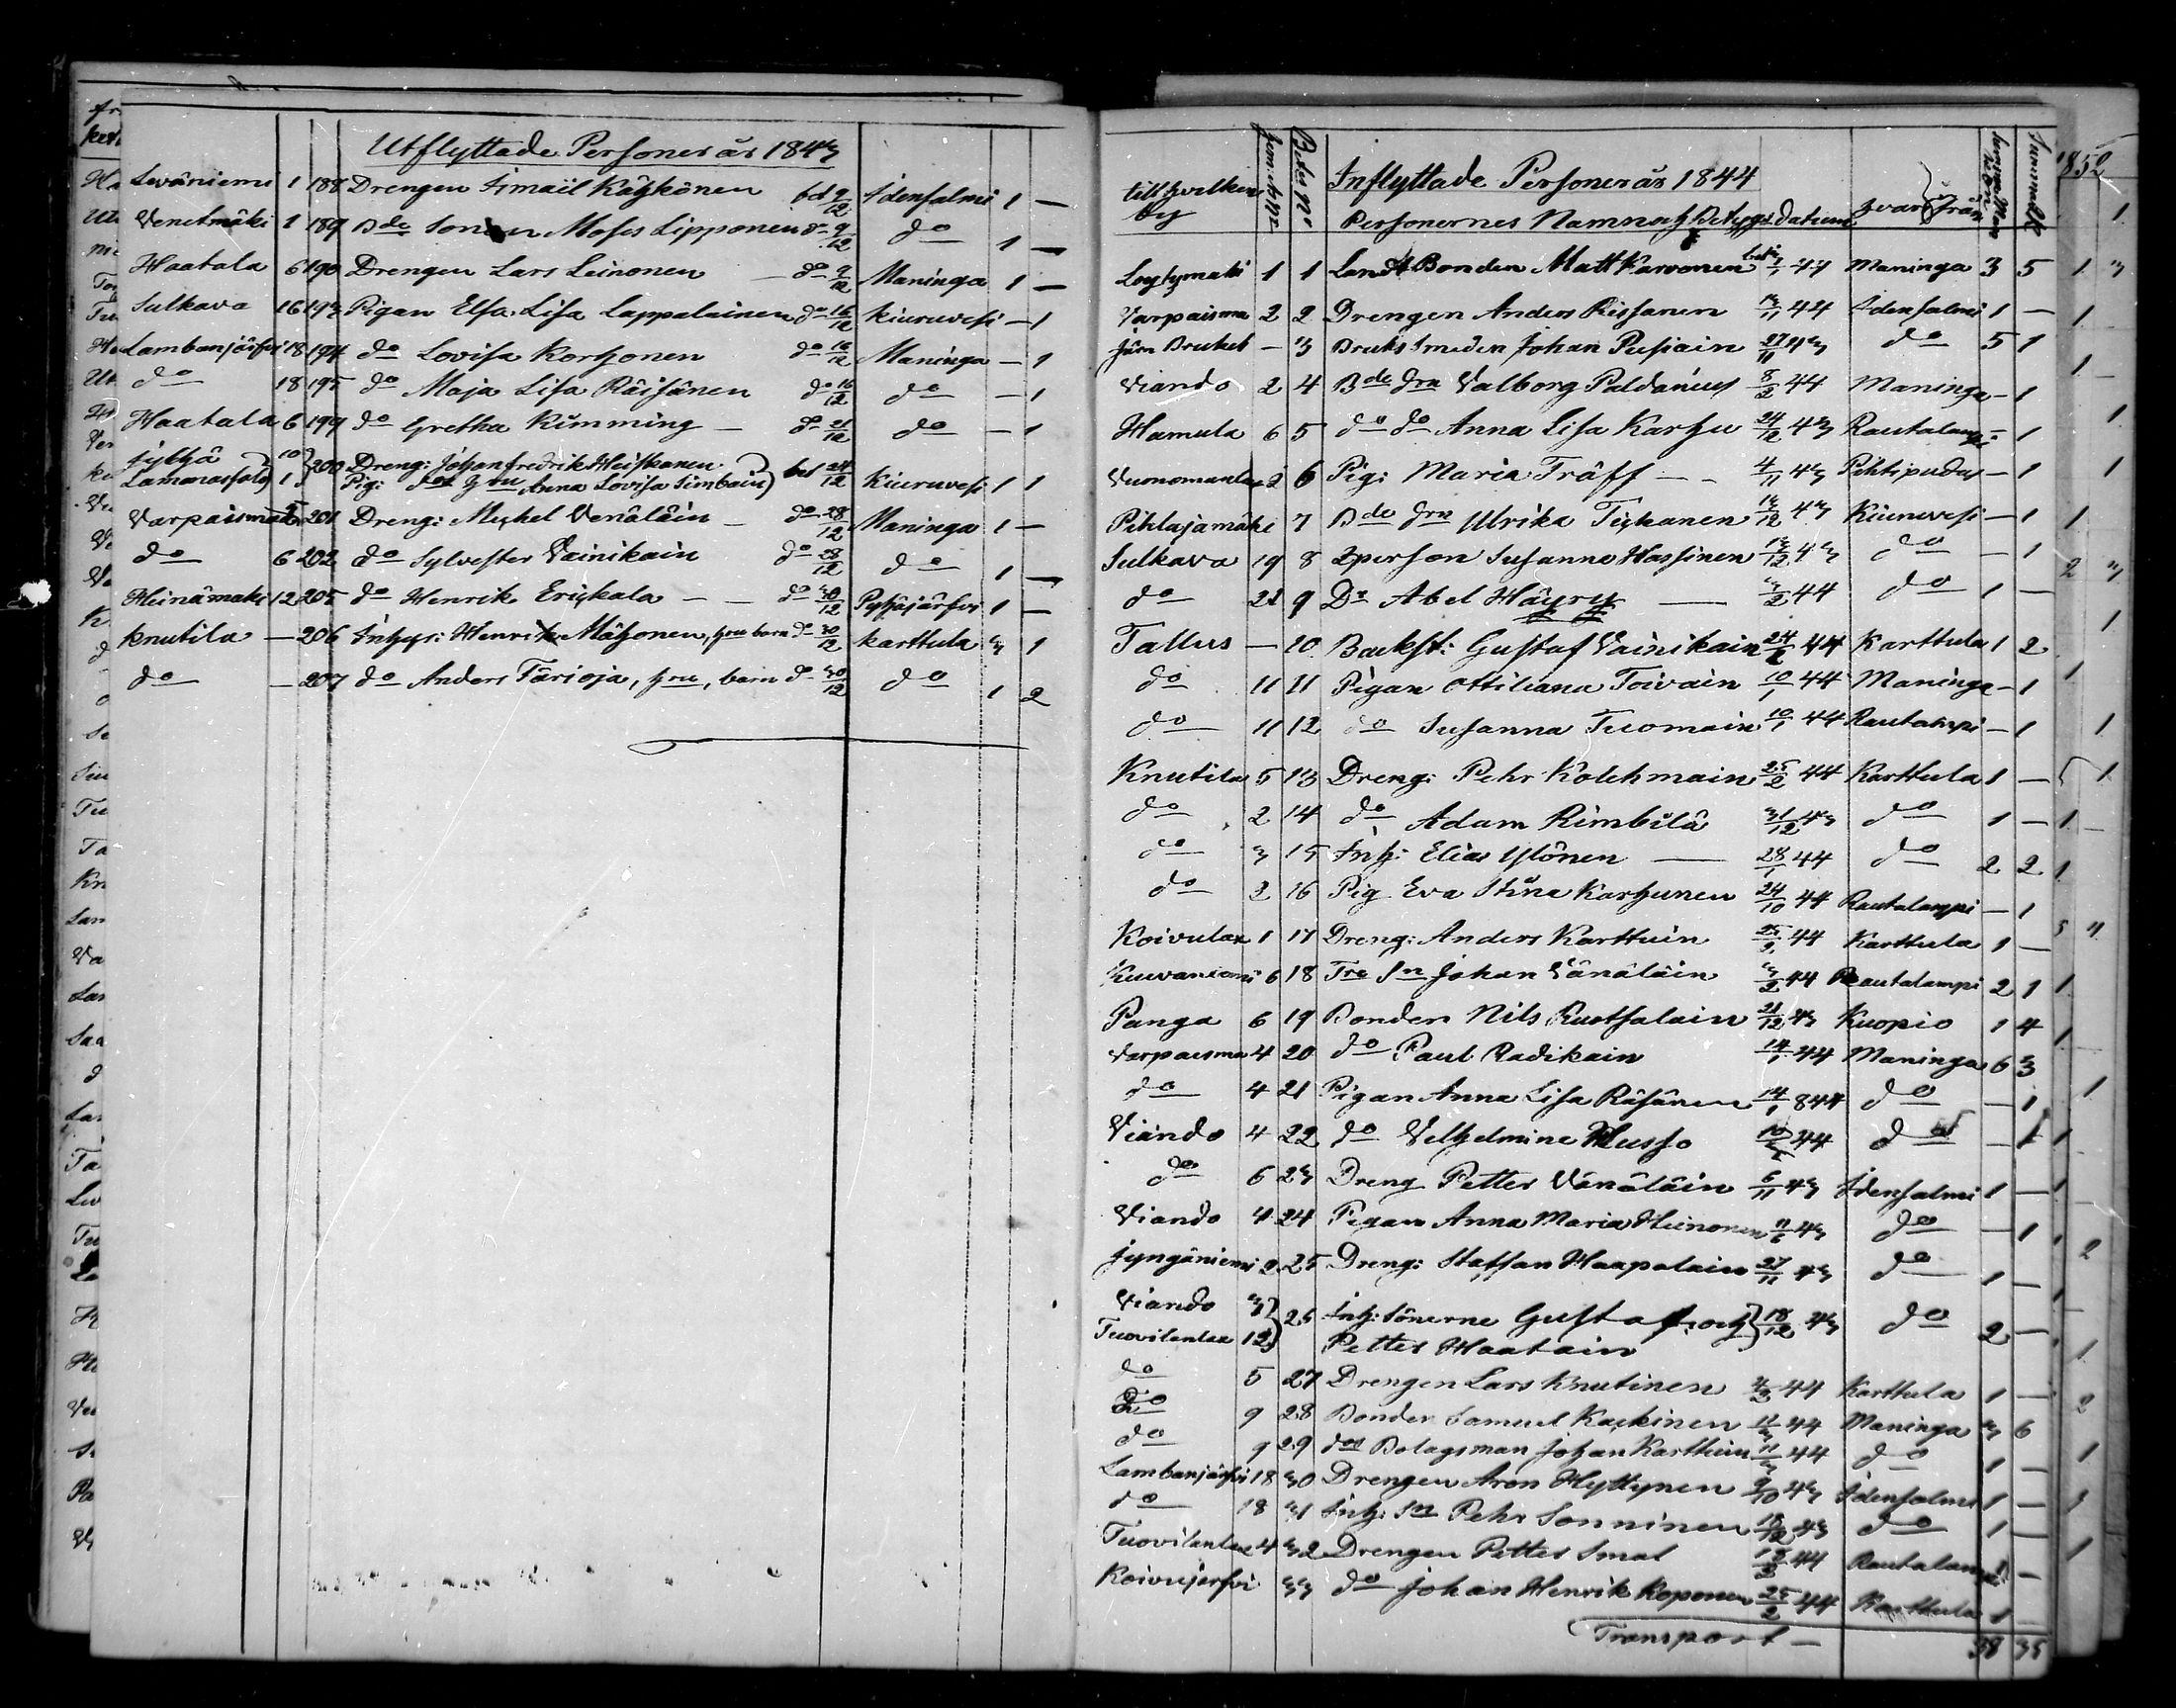 Utflyttade Personer år 1843
Leväniemi 1 188 Drengen Ismaïl Käyhkönen bd 9/12 Idensalmi 1 —
Venetmäki 1 189 Bde Sonen Moses Lipponen do 9/12 do 1 —
Haatala 6 190 Drengen Lars Leinonen — do 9/12 Maninga 1 —
Sulkava 16 193 Pigan Elsa Lisa Lappalainen do 16/12 Kiuruvesi — 1
Lambanjärfvi 18 194 do Lovisa Korhonen do 16/12 Maninga — 1
do 18 195 do Maja Lisa Räisänen do 16/12 do — 1
Haatala 6 199 do Gretha Kimming — do 21/12 do — 1
Jylhä 10 } 200 Dreng: Johan Fredrik Heiskanen } bet 24/12 Kiuruvesi 1 1
Pig: Anna Lovisa Simbain
Varpaisma 2 201 Dreng: Michel Venäläin — do 28/12 Maninga 1 —
do 6 202 do Sylvester Vainikain do 28/12 do 1 —
Heinämäki 12 205 do Henrik Erickala — — do 30/12 Pyhäjärfvi 1 —
Knutila — 206 Inhys: Henrik Mähonen, hru barn do 30/12 Karttula 3 1
do — 207 do Anders Tärioja, hru, barn do 30/12 do 1 2
1852
till hvilken by
Inflyttade Personer år 1844
Personernes Namn och Betygs Datum
hvarifrån
Löytymäki 1 1 Landt Bonden Matt Karvonen 44 Maninga 3 5
Varpaisma 2 2 Drengen Anders Rissanen 13/11 44 Idensalmi 1 —
Järn Bruket — 3 Bruks Smeden Johan Pusiain 27/11 43 do 5 1
Viando 2 4 Bde Drn Valborg Paldanius 8/2 44 Maninga — 1
Hamula 6 5 do do Anna Lisa Karhu 24/12 43 Rautalampi — 1
Vuonomanlax 2 6 Pig: Maria Träff — — 4/11 43 Pihtipudas — 1
Pihlajamäki 7 Bde Drn Ulrika Tickanen 13/12 43 Kiuruvesi — 1
Sulkava 19 8 Qperson Susanna Hassinen 13/12 43 do — 1
do 21 9 Dr Abel Häyry — 3/2 44 do 1 —
Tallus — 10 Backst: Gustaf Vainikain 24/2 44 Karttula 1 2
do 11 11 Pigan Ottiliana Toivain 10/1 44 Maninga — 1
do 11 12 do Susanna Tuomain 10/1 44 Rautalampi — 1
Knutila 5 13 Dreng: Pehr Kolehmain 25/2 44 Karttula 1 —
do 2 14 do Adam Rimbilä 31/12 43 do 1 —
do 3 15 Inh: Elias Ylönen — 28/1 44 do 2 2
do 2 16 Pig Eva Stina Karhunen 24/10 44 Rautalampi — 1
Koivulax 1 17 Dreng: Anders Karttuin 25/2 44 Karttula 1 —
Kuvaniemi 6 18 Tre Sn Johan Vänäläin 3/2 44 Rautalampi 2 1
Panga 6 19 Bonden Nils Ruotsalain 21/12 43 Kuopio 1 4
Varpaisma 4 20 do Paul Radikain 14/1 44 Maninga 6 3
do 4 21 Pigan Anna Lisa Räsänen 14/1 844 do — 1
Viando 4 22 do Velhelmina Husso 44 do — 1
do 6 23 Dreng Petter Vänäläin 5/11 43 Idensalmi 1 —
Viando 4 24 Pigan Anna Maria Heinonen 43 do — 1
Jyngäniemi 2 25 Dreng: Staffan Haapalain 27/11 43 do 1 —
Viando 3 } 26 Inh: Sönerne Gustaf och } 18/12 43 do 2 —
Tuovilanlax 12 Petter Haatain
do 5 27 Drengen Lars Knutinen 44 Karttula 1 —
Do 9 28 Bonden Samuel Kackinen 11/3 44 Maninga 3 6
do 9 29 dos Bolagsman Johan Karttuin 11/3 44 do 1 —
Lambanjärfvi 18 30 Drengen Aron Hyttynen 9/10 43 Idensalmi 1 —
do 18 31 Inh: Sn Pehr Sonninen 18/12 43 do 1 —
Tuovilanlax 4 32 Drengen Petter Smal 44 Rautalampi 1 —
Koivujerfvi 33 do Johan Henrik Koponen 25/2 44 Karttula 1 —
Transport — 38 35